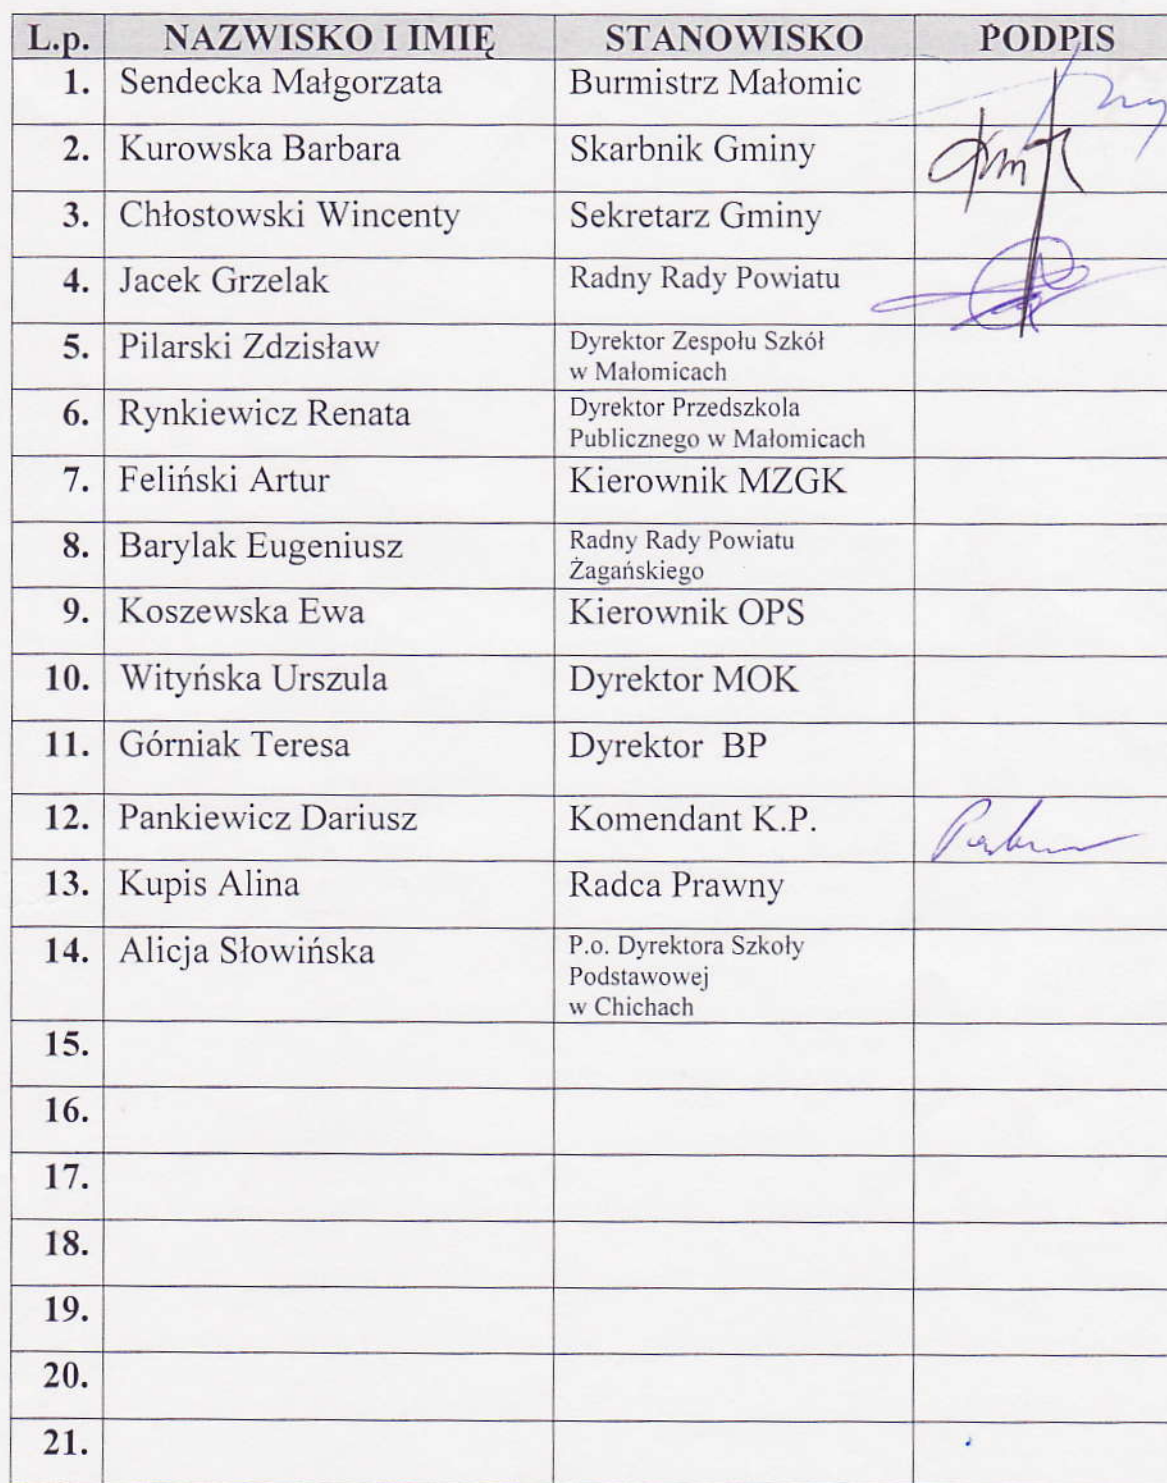 L.p. NAZWISKO I IMIĘ STANOWISKO PODPIS
1. Sendecka Małgorzata Burmistrz Małomic
2. Kurowska Barbara Skarbnik Gminy
3. Chłostowski Wincenty Sekretarz Gminy
4. Jacek Grzelak Radny Rady Powiatu
5. Pilarski Zdzisław Dyrektor Zespołu Szkół
w Małomicach
6. Rynkiewicz Renata Dyrektor Przedszkola
Publicznego w Małomicach
7. Feliński Artur Kierownik MZGK
8. Barylak Eugeniusz Radny Rady Powiatu
Żagańskiego
9. Koszewska Ewa Kierownik OPS
10. Wityńska Urszula Dyrektor MOK
11. Górniak Teresa Dyrektor BP
12. Pankiewicz Dariusz Komendant K.P.
13. Kupis Alina Radca Prawny
14. Alicja Słowińska P.o. Dyrektora Szkoły
Podstawowej
w Chichach
15.
16.
17.
18.
19.
20.
21.